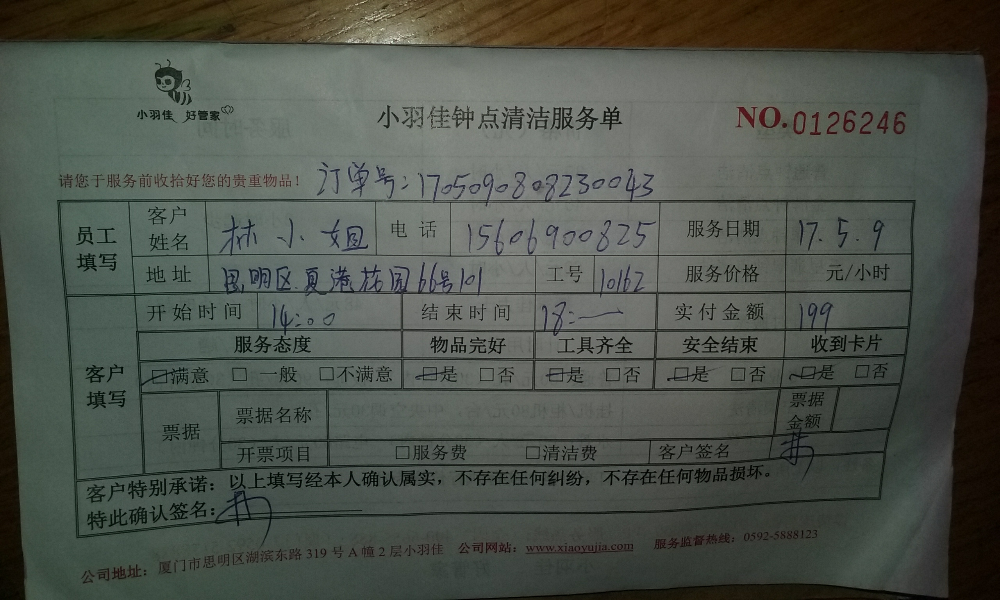 小羽佳 好管家
小羽佳钟点清洁服务单
NO.0126246
请您于服务前收拾好您的贵重物品！ 订单号:1705090808230043
员工填写 客户姓名 林小姐 电话 15606900825 服务日期 17.5.9
地址 思明区夏港花园66号101 工号 10162 服务价格 元/小时
客户填写 开始时间 14:00 结束时间 18:一 实付金额 199
服务态度 物品完好 工具齐全 安全结束 收到卡片
☑满意 □一般 □不满意 ☑是 □否 ☑是 □否 ☑是 □否 ☑是 □否
票据 票据名称 票据金额
开票项目 □服务费 □清洁费 客户签名
客户特别承诺：以上填写经本人确认属实，不存在任何纠纷，不存在任何物品损坏。
特此确认签名：
公司地址：厦门市思明区湖滨东路 319 号 A 幢 2 层小羽佳 公司网站：www.xiaoyujia.com 服务监督热线：0592-5888123